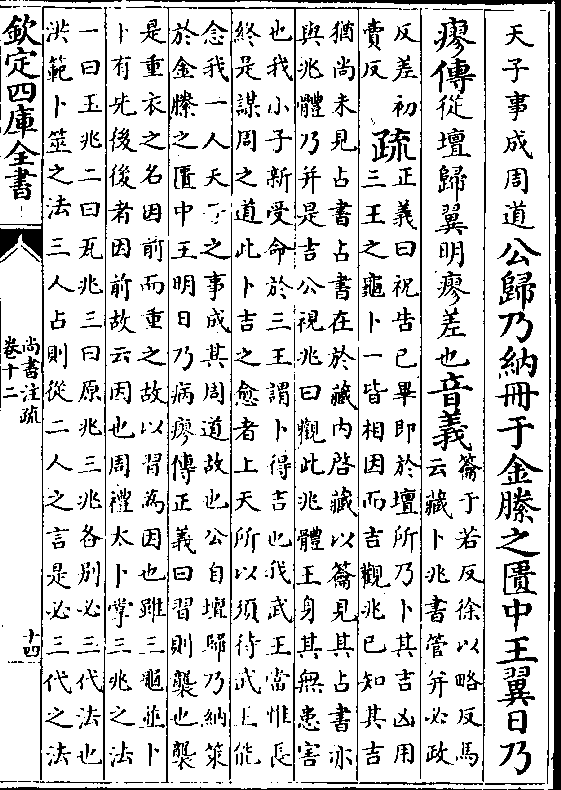 天子事成周道公歸乃納冊于金縢之匱中王翼日乃
瘳傳從壇歸翼明瘳差也音義籥于若反徐以略反馬
云藏卜兆書管并必政
反差初
賣反疏正義曰祝告已畢即於壇所乃卜其吉凶用
三王之龜卜一皆相因而吉觀兆已知其吉
猶尚未見占書占書在於藏内啓藏以籥見其占書亦
與兆體乃并是吉公視兆曰觀此兆體王身其無患害
也我小子新受命於三王謂卜得吉也我武王當惟長
終是謀周之道此卜吉之愈者上天所以須待武王能
念我一人天子之事成其周道故也公自壇歸乃納策
於金縢之匱中王明日乃病瘳傳正義曰習則襲也襲
是重衣之名因前而重之故以習為因也雖三龜並卜
卜有先後後者因前故云因也周禮太卜掌三兆之法
一曰玉兆二曰瓦兆三曰原兆三兆各别必三代法也
洪範卜筮之法三人占則從二人之言是必三代之法
欽定四庫全書
尚書注疏
卷十二
十四